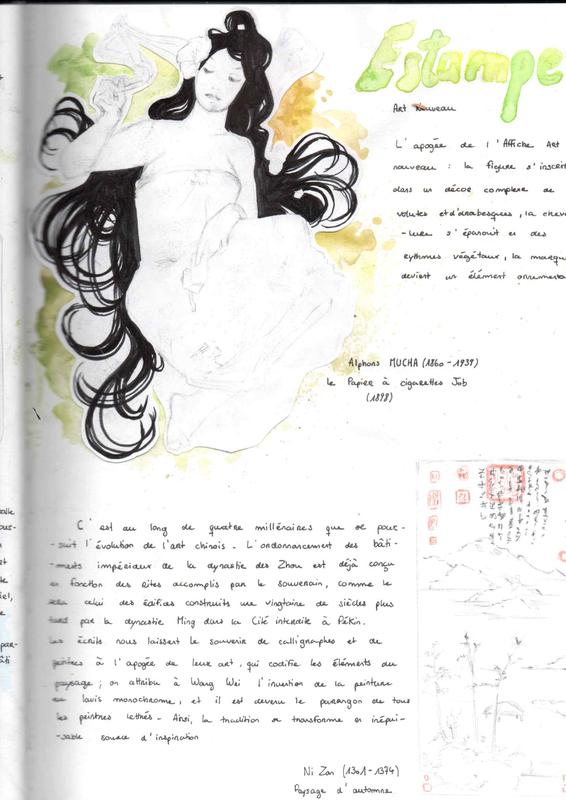 Estampe
Art Nouveau
L'apogée de l'Affiche Art
nouveau : la figure s'inscrit
dans un décor complexe de
volutes et d'arabesques, la cheve
-lure s'épanouit en des
rythmes végétaux, la marque
devient un élément ornementa
Alphons MUCHA (1860-1939)
le Papier à cigarettes Job
(1898)
C'est au long de quatre millénaires que se pour-
-suit l'évolution de l'art chinois. L'ordonnancement des bâti-
-ments impériaux de la dynastie des Zhou est déjà conçu
en fonction des Rites accomplis par le souverain, comme le
celui des édifices construits une vingtaine de siècles plus
tard par la dynastie Ming dans la Cité interdite à Pékin.
Les écrits nous laissent le souvenir de calligraphes et de
peintres à l'apogée de leur art, qui codifie les éléments du
paysage ; on attribu à Wang Wei l'invention de la peinture
au lavis monochrome, et il est devenu le parangon de tous
les peintres lettrés. Ainsi, la tradition se transforme en inépui-
-sable source d'inspiration
Ni Zan (1301-1374)
Paysage d'automne